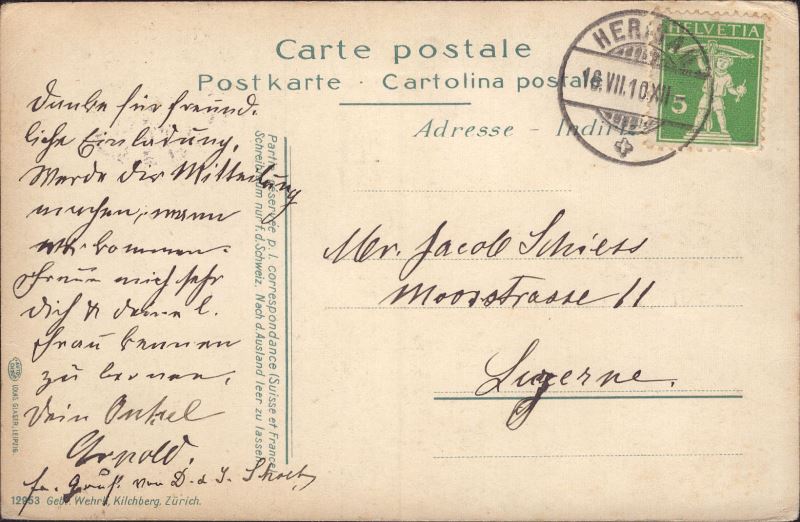 Carte postale
Postkarte - Cartolina postale
Adresse - Indiri
HELVETIA
5
HERISAU
16.VII.10.XII
Danke für freund-
liche Einladung.
Werde dir Mitteilung
machen, wann
wir kommen.
Freue mich sehr
Dich & deine l.
Frau kennen
zu lernen.
Dein Onkel
Arnold.
fr. Gruß von D. d J.
Mr. Jacob Schiess
Moosstrasse 11
Luzerne.
Partie réservée p. l. correspondance (Suisse et France)
Schreibraum nur f. d. Schweiz. Nach d. Ausland leer zu lassen
LOUIS GLASER, LEIPZIG
12953 Gebr. Wehrli, Kilchberg, Zürich.